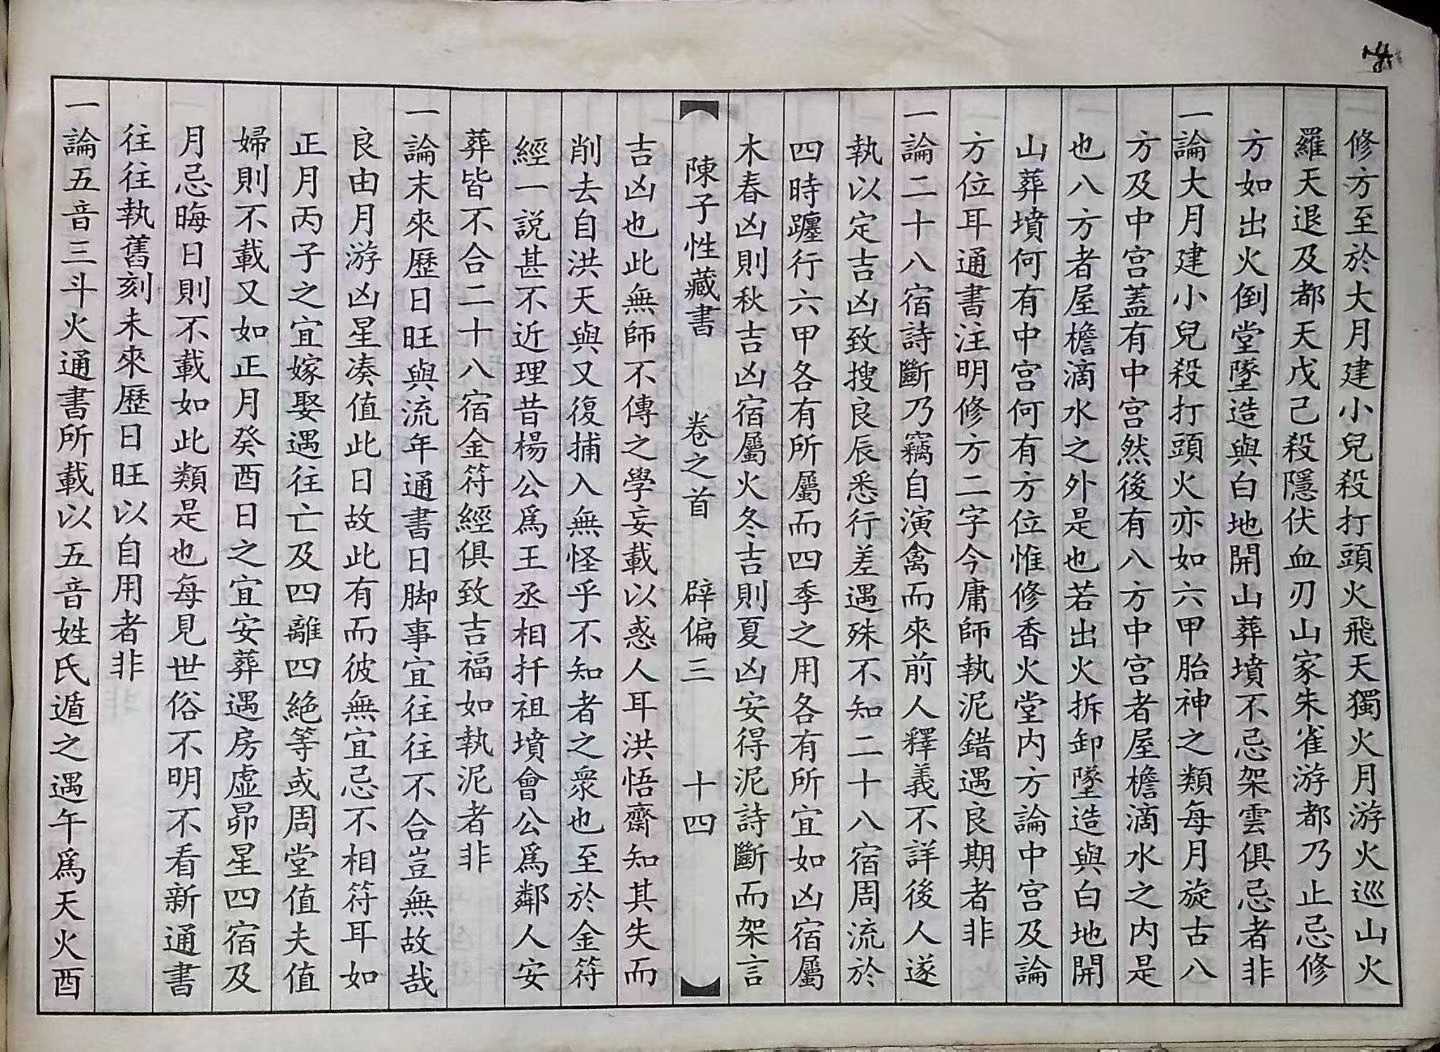 修方至於大月建小兒殺打頭火飛天獨火月游火巡山火
羅天退及都天戊己殺隱伏血刃山家朱雀游都乃止忌修
方如出火倒堂墜造與白地開山葬墳不忌架雲俱忌者非
一論大月建小兒殺打頭火亦如六甲胎神之類每月旋古八
方及中宮蓋有中宮然後有八方中宮者屋檐滴水之內是
也八方者屋檐滴水之外是也若出火拆卸墜造與白地開
山葬墳何有中宮何有方位惟修香火堂內方論中宮及論
方位耳通書注明修方二字今庸師執泥錯遇良期者非
一論二十八宿詩斷乃竊自演禽而來前人釋義不詳後人遂
執以定吉凶致搜良辰悉行差遇殊不知二十八宿周流於
四時躔行六甲各有所屬而四季之用各有所宜如凶宿屬
木春凶則秋吉凶宿屬火冬吉則夏凶安得泥詩斷而架言
陳子性藏書 卷之首 辟偏三 十四
吉凶也此無師不傳之學妄載以惑人耳洪悟齋知其失而
削去自洪天與又復捕入無怪乎不知者之衆也至於金符
經一説甚不近理昔楊公爲王丞相扦祖墳會公爲鄰人安
葬皆不合二十八宿金符經俱致吉福如執泥者非
一論末來歷日旺與流年通書日脚事宜往往不合豈無故哉
良由月游凶星凑值此日故此有而彼無宜忌不相符耳如
正月丙子之宜嫁娶遇往亡及四離四絕等或周堂值夫值
婦則不載又如正月癸酉日之宜安葬遇房虛昴星四宿及
月忌晦日則不載如此類是也每見世俗不明不看新通書
往往執舊刻未來歷日旺以自用者非
一論五音三斗火通書所載以五音姓氏遁之遇午爲天火酉